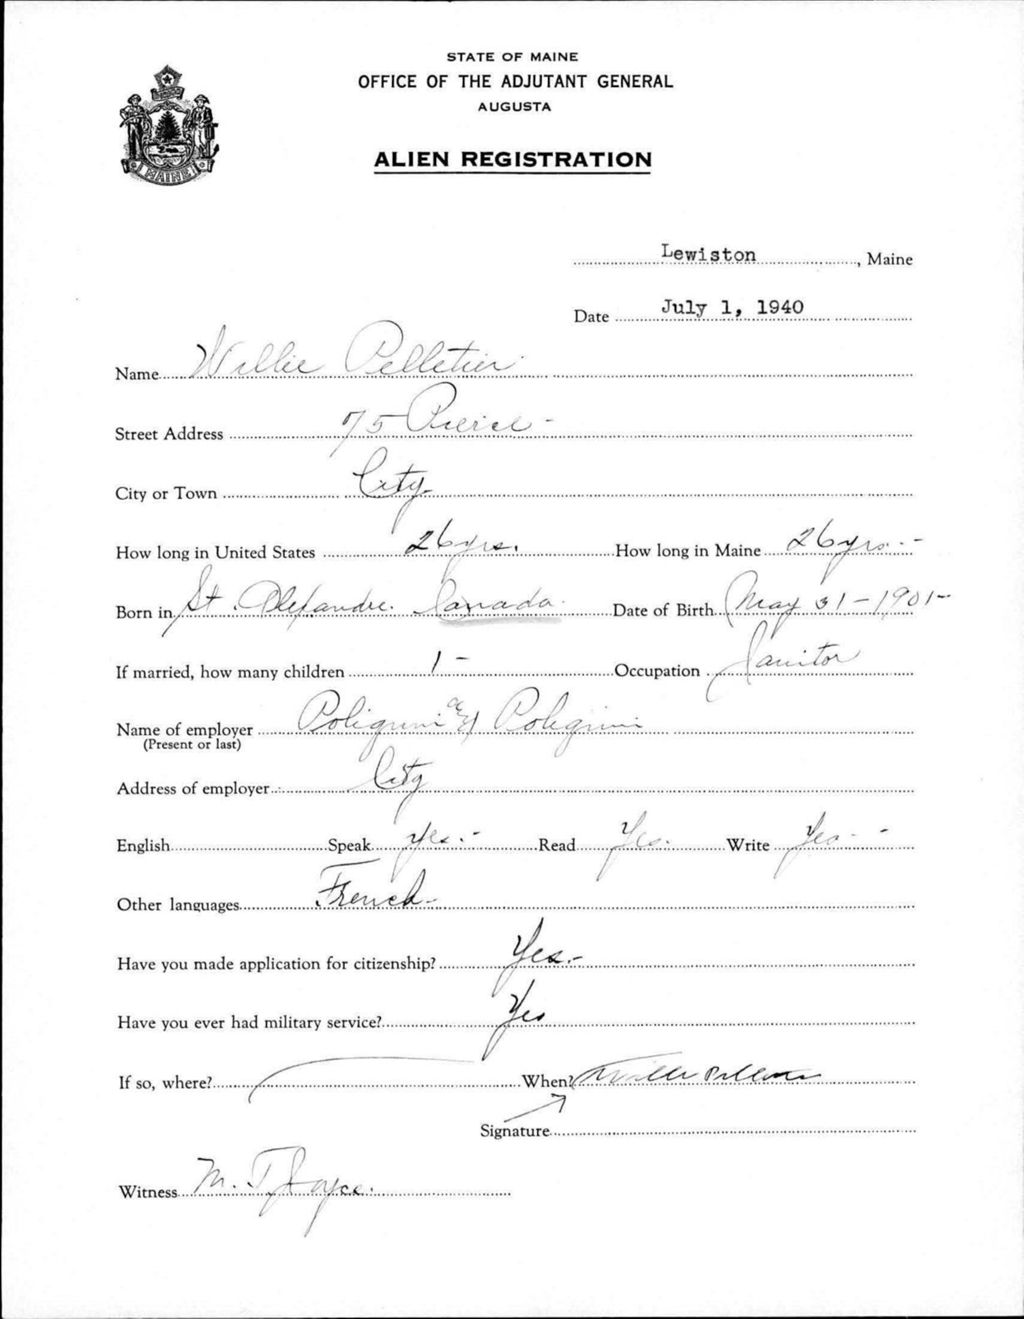 STATE OF MAINE
OFFICE OF THE ADJUTANT GENERAL
AUGUSTA
MAINE
ALIEN REGISTRATION
Lewiston, Maine
Date July 1, 1940
Name Willie Pelletier
Street Address 75 Pierce -
City or Town City
How long in United States 26 yrs. How long in Maine 26 yrs. -
Born in St. Alexandre. Canada. Date of Birth May 31-1901-
If married, how many children 1 - Occupation Janitor
Name of employer Poligrini & Poligrini
(Present or last)
Address of employer City
English Speak Yes. - Read Yes. Write Yes - -
Other languages French.
Have you made application for citizenship? Yes.-
Have you ever had military service? Yes
If so, where? When? Willie Pelletier
Signature
Witness M. T. Joyce.